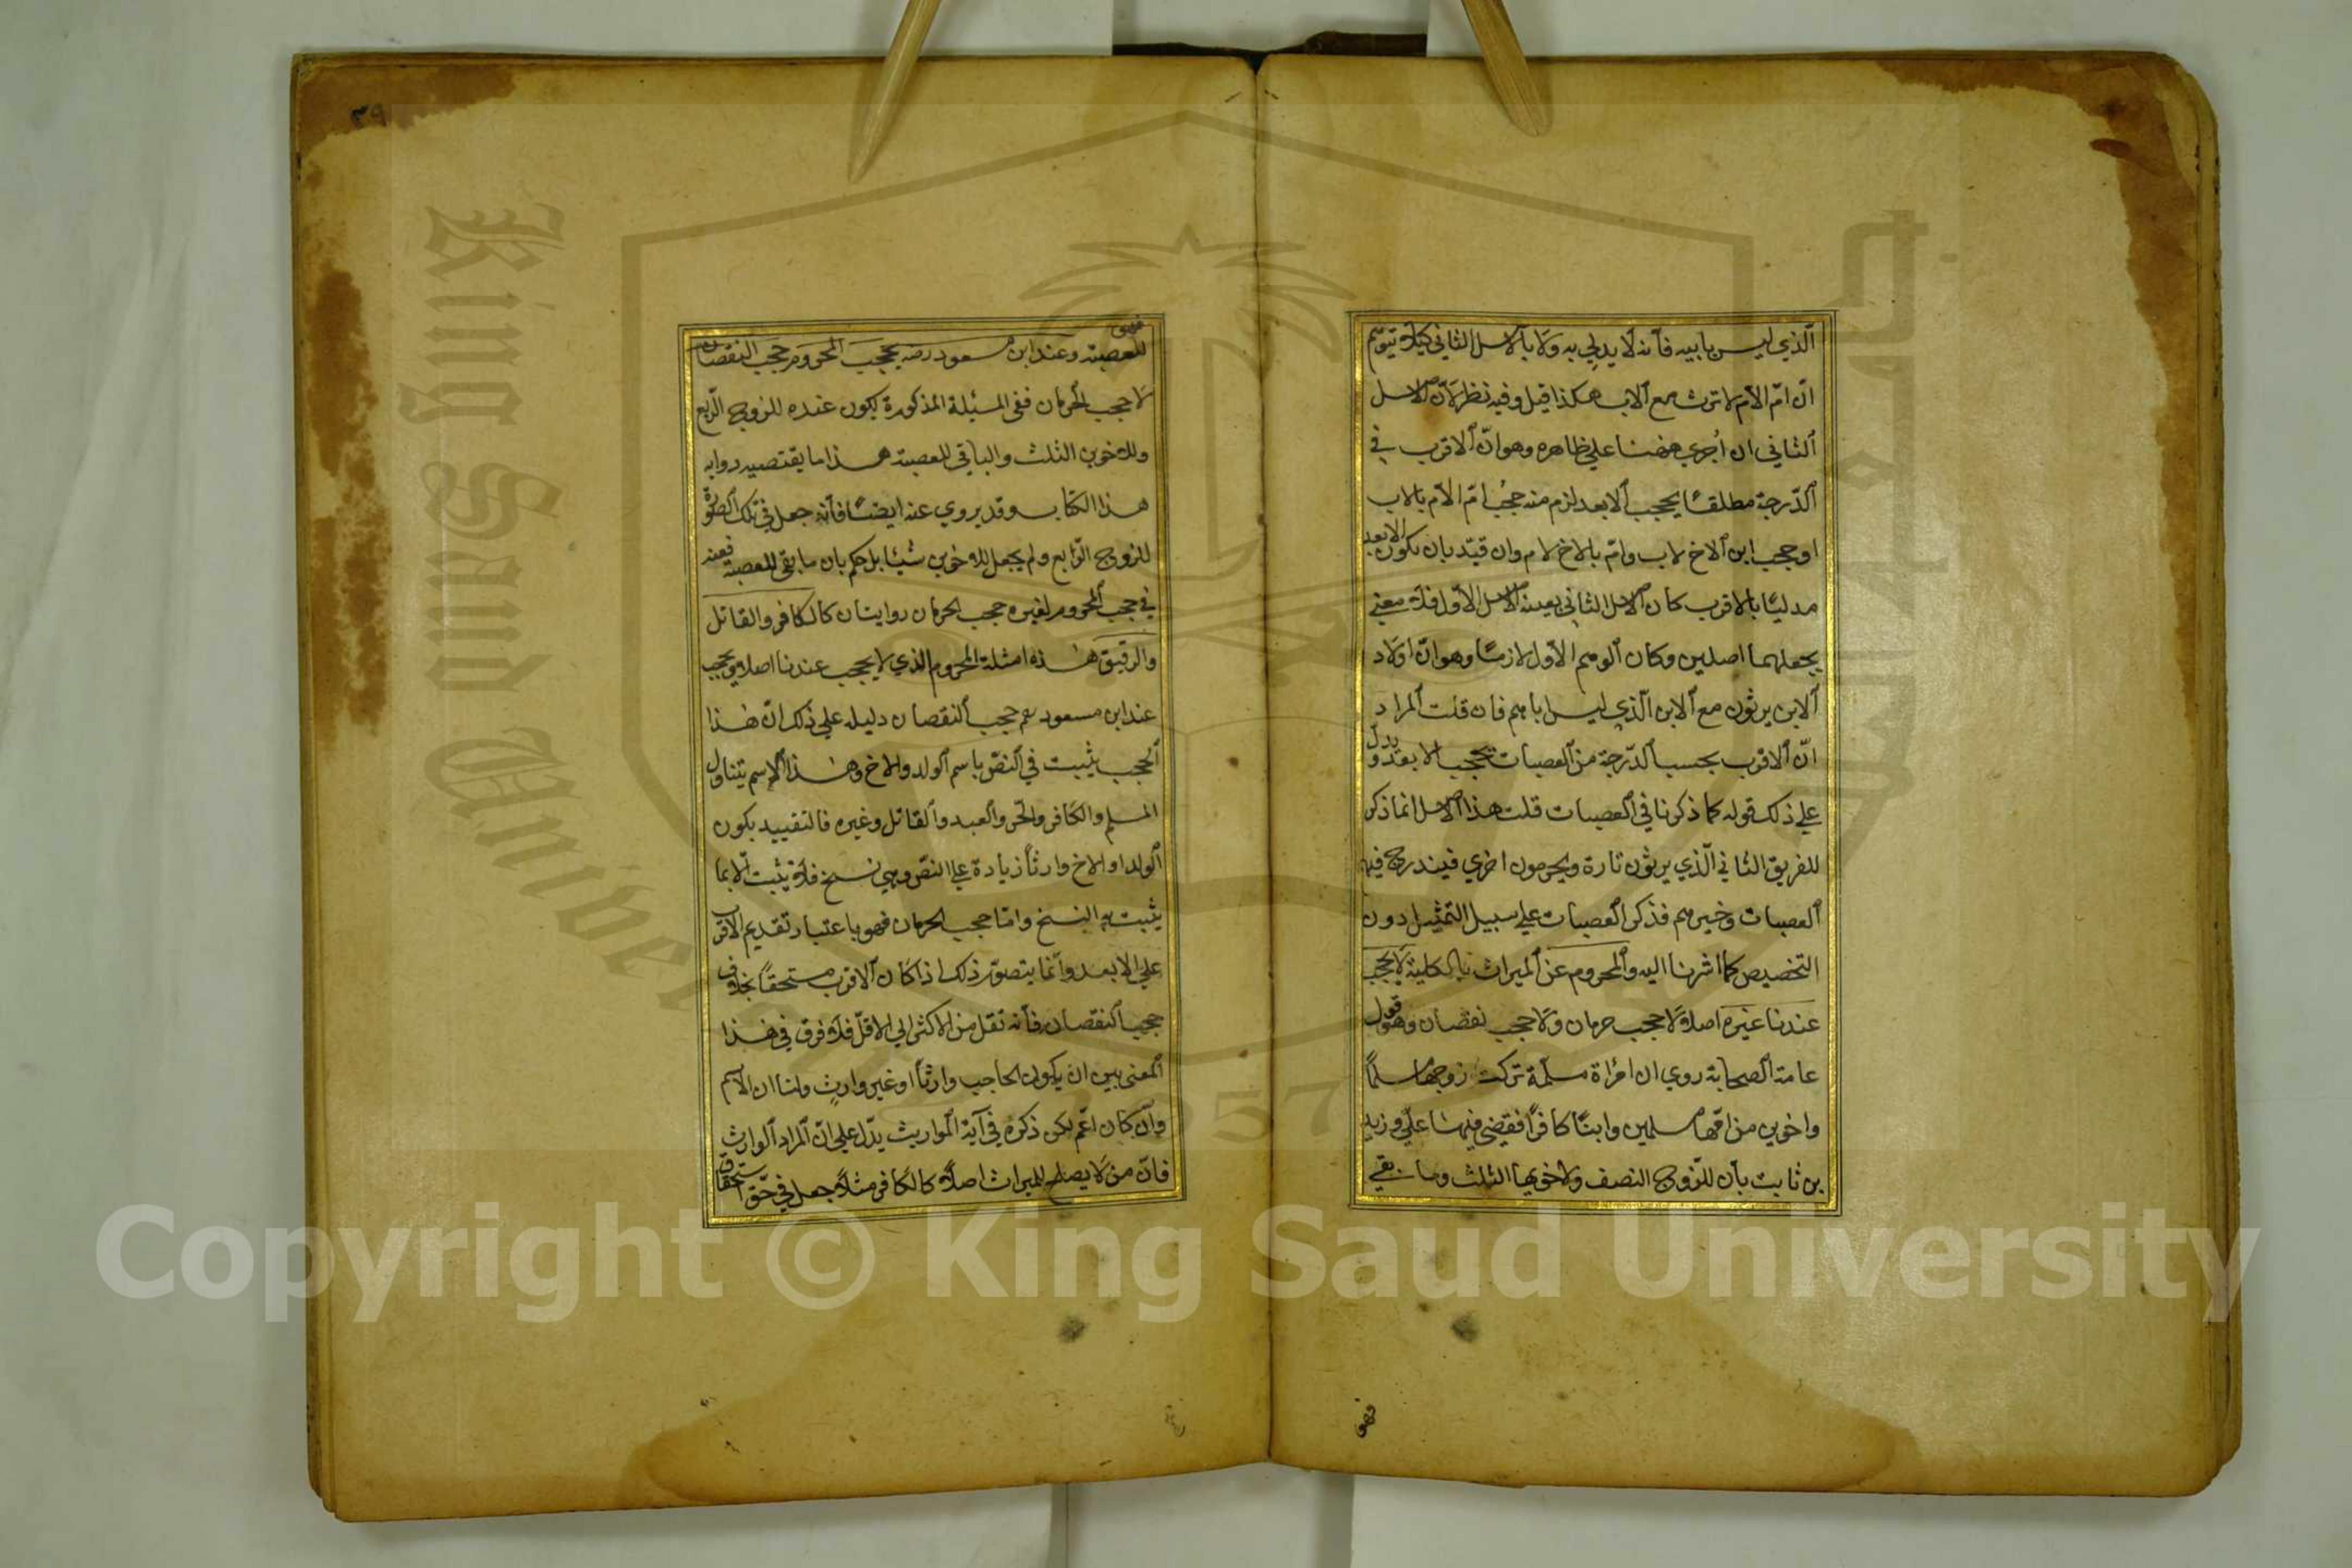 الذي ليس بابيه فأنه لا يدلي به ولا بالاصل الثاني كيلا يتوهم
انّ امّ الامّ لا ترث مع الاب هكذا قيل وفيه نظر لانّ الاصل
الثاني ان اُجري ههنا علي ظاهره وهو انّ الاقرب في
الدّرجة مطلقًا يحجب الابعد لزم منه حجب امّ الامّ بالاب
او حجب ابن الاخ لاب وامّ بالاخ لام وان قيّد بان يكون الابعد
مدليًا بالاقرب كان الاصل الثاني بعينه الاصل الاوّل فلا معني
يجعلهما اصلين وكان الوهم الاوّل لازمًا وهو انّ اولاد
الابن يرثون مع الابن الّذي ليس بابيهم فان قلت المراد
انّ الاقرب بحسب الدّرجة من العصبات يحجب الابعد ويدلّ
علي ذلك قوله كما ذكرنا في العصبات قلت هذا الاصل انما ذكر
للفريق الثاني الّذي يرثون تارة ويحرمون اخري فيندرج فيه
العصبات وغيرهم فذكر العصبات علي سبيل التمثيل دون
التخصيص كما اشرنا اليه والمحروم عن الميراث بالكلية لا يحجب
عندنا غيره اصلا لا حجب حرمان ولا حجب نقصان وهو قول
عامة الصحابة روي ان امرأة مسلمة تركت زوجها مسلمًا
واخوين من امّها مسلمين وابنًا كافرًا فقضي فيها عليّ وزيد
بن ثابت بأن للزّوج النصف ولاخويها الثلث وما بقي
فهو
فهو
للعصبة وعند ابن مسعود رضه يحجب المحروم حجب النقصان
لا حجب الحرمان ففي المسئلة المذكورة يكون عنده للزوج الرّبع
وللاخوين الثلث والباقي للعصبة هذا ما يقتضيه رواية
هذا الكتاب وقد يروي عنه ايضًا فأنّه جعل في تلك الصّورة
للزوج الرّابع ولم يجعل للاخوين شيئا بل حكم بان ما بقي للعصبة فعنه
في حجب المحروم لغيره حجب الحرمان روايتان كالكافر والقاتل
والرقيق هذه امثلة المحروم الذي لا يحجب عندنا اصلا ويحجب
عند ابن مسعود حجب النقصان دليله علي ذلك انّ هذا
الحجب يثبت في النصّ باسم الولد والاخ وهذا الاسم يتناول
المسلم والكافر والحرّ والعبد والقاتل وغيره فالتقييد بكون
الولد او الاخ وارثًا زيادة علي النصّ وهي نسخ فلا يثبت الّا بما
يثبت به النسخ وامّا حجب الحرمان فهو باعتبار تقديم الاقرب
علي الابعد وانّما يتصوّر ذلك اذا كان الاقرب مستحقًا بخلاف
حجب النقصان فأنه نقل من الاكثر الي الاقلّ فلا فرق في هذا
المعنى بين ان يكون الحاجب وارثًا او غير وارثٍ ولنا ان الاسم
وان كان اعّم لكن ذكره في آية المواريث يدّل علي انّ المراد الوارث
فانّ من لا يصلح للميراث اصلًا كالكافر مثلًا جعل في حقّ استحقاق
٣٩
King Saud Univer
1957
Copyright © King Saud University